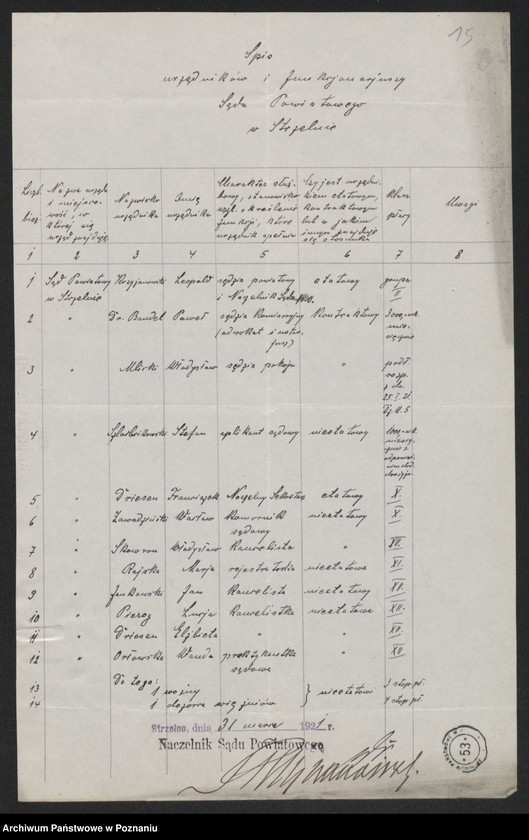 15
Spis
urzędników i funkcjonarjuszy
Sądu Powiatowego
w Strzelnie
Liczb. bież. Nazwa urzędu i miejscowość, w której się urząd znajduje Nazwisko urzędnika Imię urzędnika Charakter służbowy, stanowisko wzgl. określenie funkcji, które urzędnik spełnia Czy jest urzędnikiem etatowym, kontraktowym lub w jakim innym znajduje się stosunku klasa płacy Uwagi
1 2 3 4 5 6 7 8
1 Sąd Powiatowy w Strzelnie Leopold sędzia powiatowy i Naczelnik Sądu etatowy grupa II
2 " Dr. Bandel Paweł sędzia komisaryczny (adwokat i notarjusz) Kontraktowy 3000 mk. miesięcznie
3 " Mlicki Władysław sędzia pokoju " podł. rozp. z dn. 25.I.21.
4 " Stefan aplikant sądowy nieetatowy 1000 mk
5 " Driesen Franciszek Naczelny Sekretarz etatowy X.
6 " Zawadziński Wacław Komornik sądowy nieetatowy X
7 " Skowron Władysław kancelista " XII.
8 " Rajska Marja rejestratorka nieetatowa XI.
9 " Jankowski Jan kancelista nieetatowy XII.
10 " Pieróg Lucja kancelistka nieetatowa XII.
11 " Driesen Elżbieta " " XII.
12 " Orłowska Wanda praktykantka sądowa XII
Do tego:
13 1 woźny } nieetatowi 3 stop. pł.
14 1 dozorca więźniów 4 stop. pł.
Strzelno, dnia 31 marca 1921 r.
Naczelnik Sądu Powiatowego
53
Archiwum Państwowe w Poznaniu